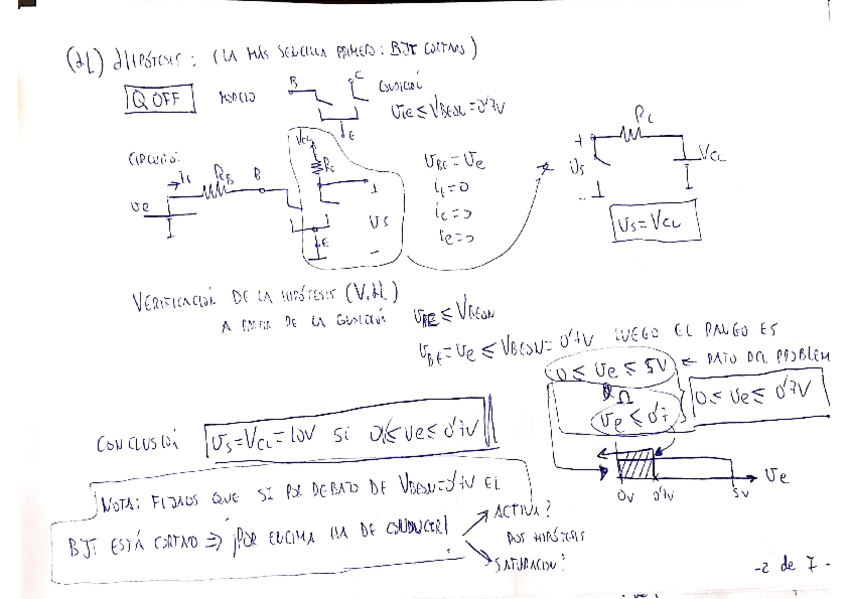 (H) HIPÓTESIS: (LA MÁS SENCILLA PRIMERO: BJT CORTADO)
Q OFF MODELO B C E CONDICIÓN
VBE ≤ VBEON = 0'7V
CIRCUITO:
ve i1 RB B VCC RC E VS -
VBE = Ve
i1=0
ic=0
ie=0
+ VS - RC VCC
VS=VCC
VERIFICACIÓN DE LA HIPÓTESIS (V.H.)
A PARTIR DE LA CONDICIÓN VBE ≤ VBEON
VBE = Ve ≤ VBEON = 0'7V LUEGO EL RANGO ES
0 ≤ Ve ≤ 5V ← DATO DEL PROBLEM
∩
Ve ≤ 0'7
0 ≤ Ve ≤ 0'7V
CONCLUSIÓN VS=VCC=10V SI 0 ≤ Ve ≤ 0'7V
0V 0'7V 5V Ve
NOTA: FIJAOS QUE SI POR DEBAJO DE VBEON=0'7V EL
BJT ESTÁ CORTADO ⇒ ¡POR ENCIMA HA DE CONDUCIR!
ACTIVA?
DOS HIPÓTESIS
SATURACIÓN?
-2 de 7-